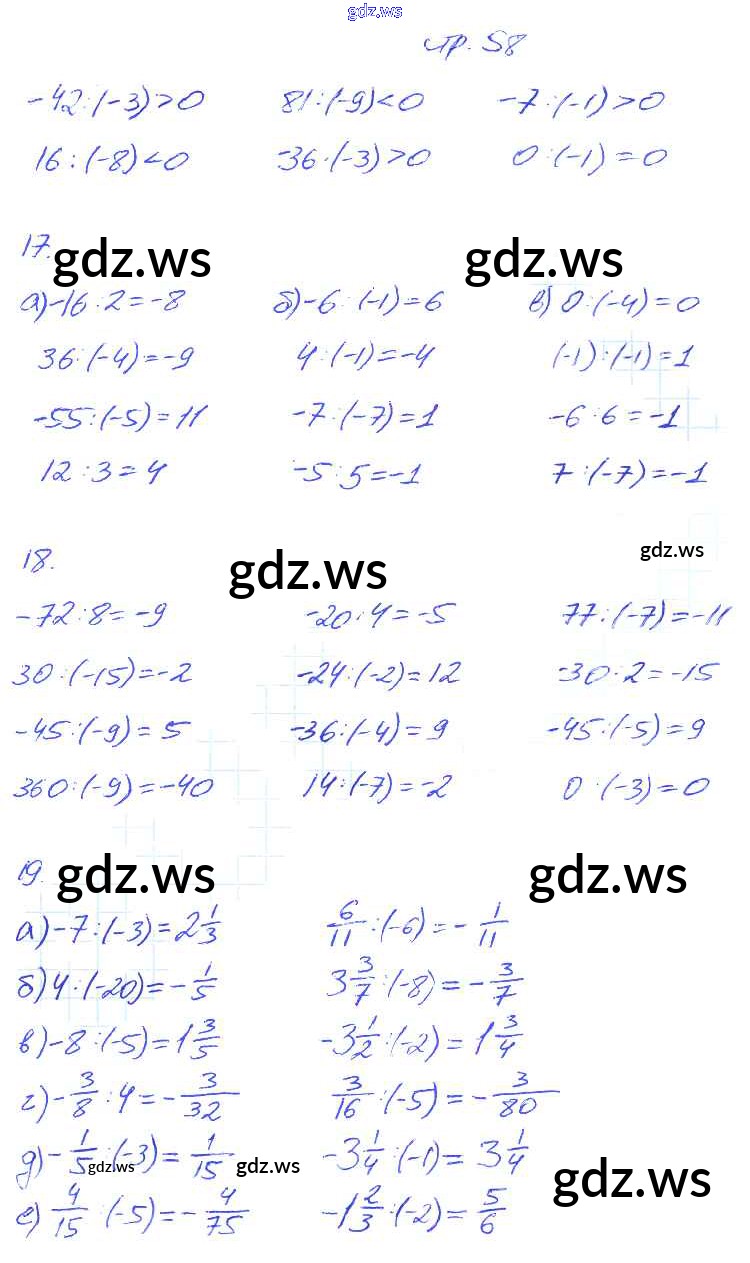 gdz.ws
стр. 58
-42:(-3)>0 81:(-9)<0 -7:(-1)>0
16:(-8)<0 -36·(-3)>0 0:(-1)=0
17.
gdz.ws gdz.ws
а)-16:2=-8 б)-6:(-1)=6 в) 0:(-4)=0
36:(-4)=-9 4:(-1)=-4 (-1):(-1)=1
-55:(-5)=11 -7:(-7)=1 -6:6=-1
12:3=4 -5:5=-1 7:(-7)=-1
18.
gdz.ws gdz.ws
-72:8=-9 -20:4=-5 77:(-7)=-11
30:(-15)=-2 -24:(-2)=12 -30:2=-15
-45:(-9)=5 -36:(-4)=9 -45:(-5)=9
360:(-9)=-40 14:(-7)=-2 0:(-3)=0
19.
gdz.ws gdz.ws
а)-7:(-3)=2 1/3 6/11:(-6)=-1/11
б)4:(-20)=-1/5 3 3/7:(-8)=-3/7
в)-8:(-5)=1 3/5 -3 1/2:(-2)=1 3/4
г)-3/8:4=-3/32 3/16:(-5)=-3/80
д)-1/5:(-3)=1/15 -3 1/4:(-1)=3 1/4
gdz.ws gdz.ws gdz.ws
е) 4/15:(-5)=-4/75 -1 2/3:(-2)=5/6